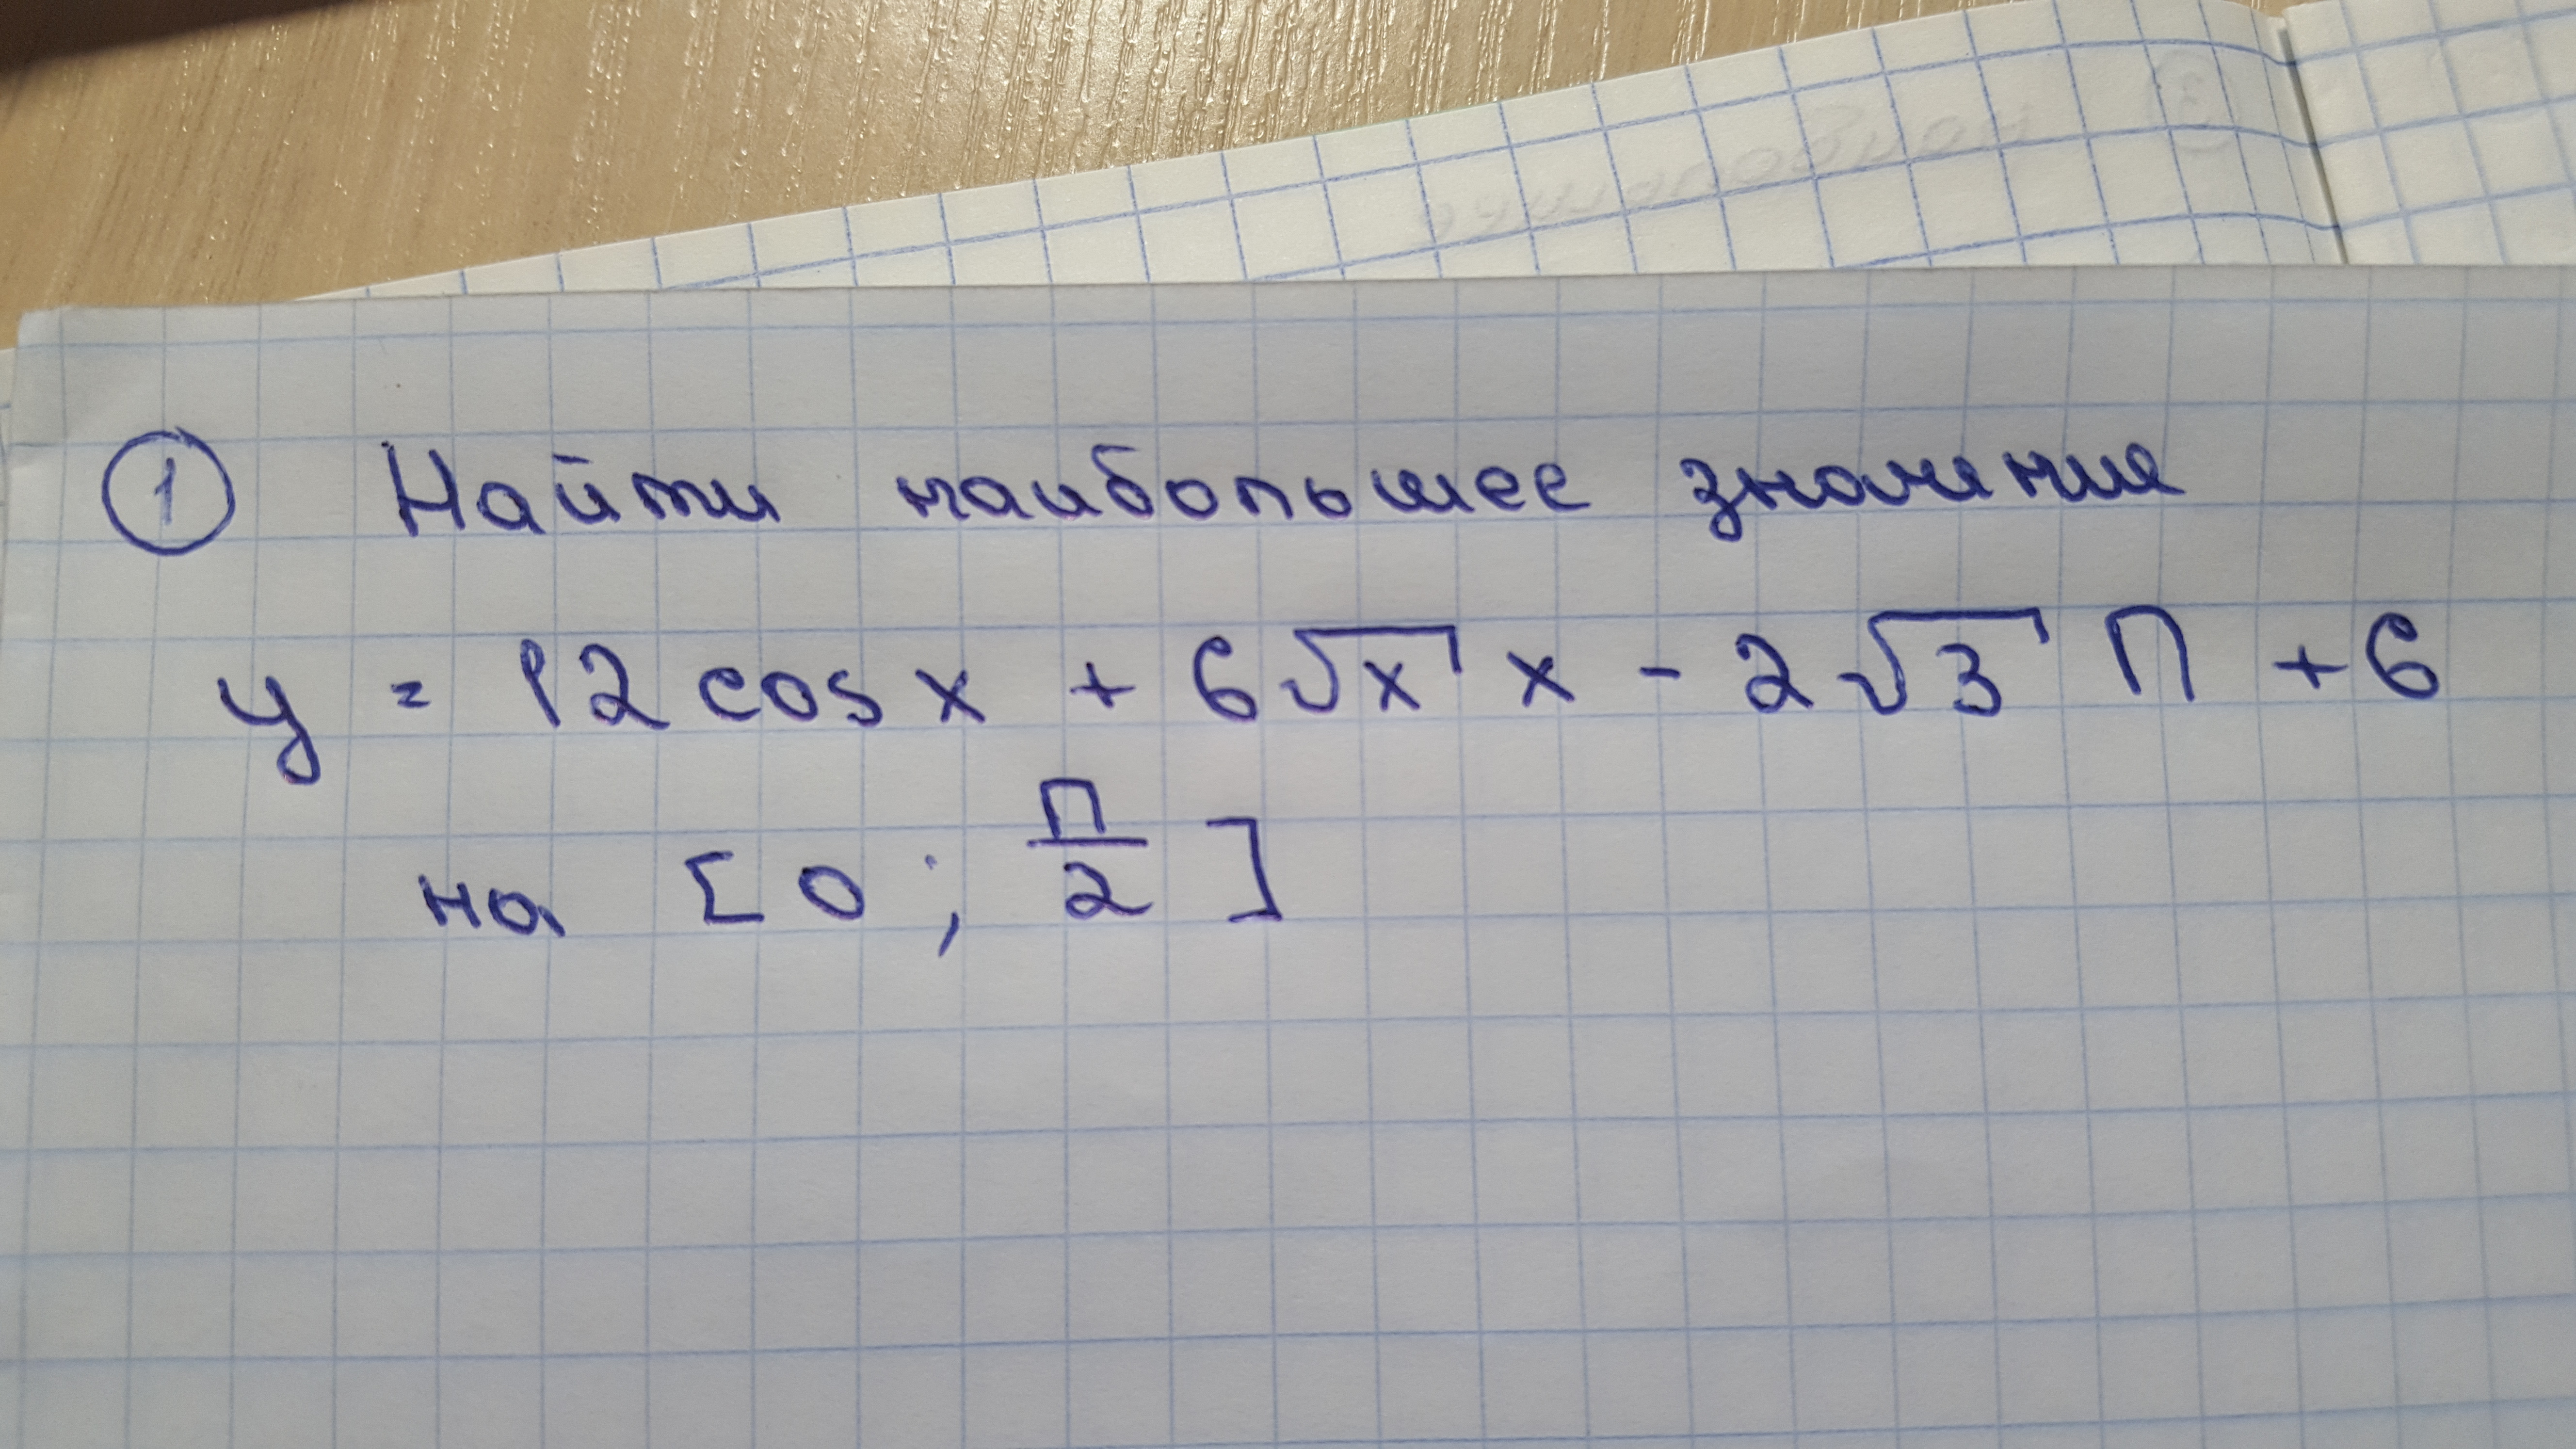 ① Найти наибольшее значение
y = 12 cos x + 6√x x - 2√3 П + 6
на [0; П/2]